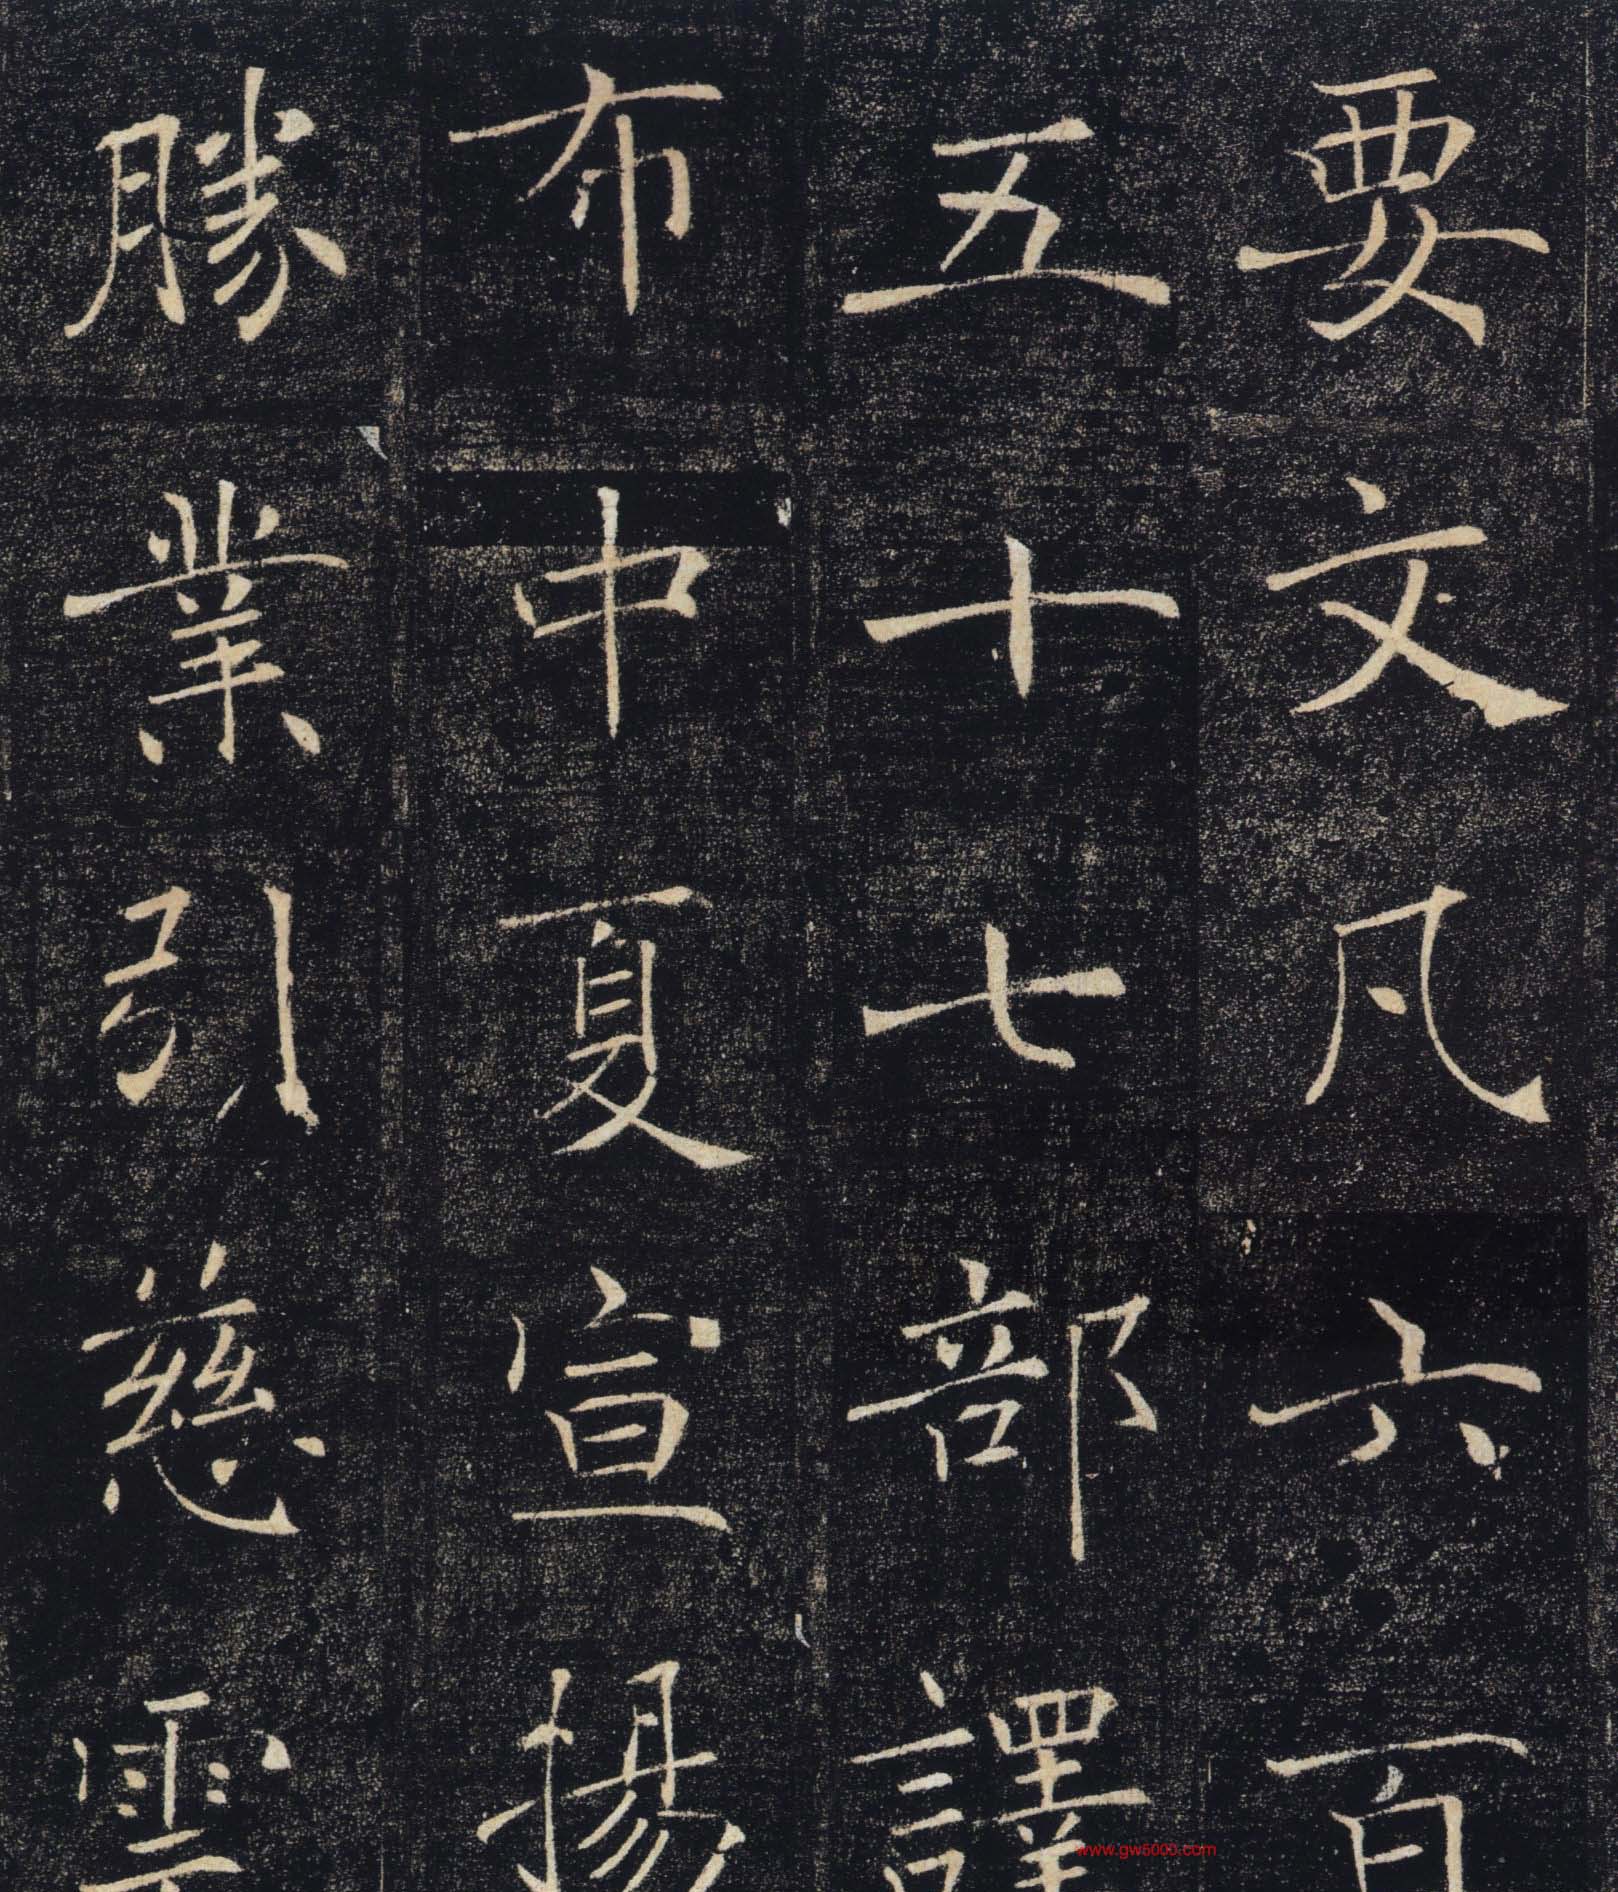 要文凡六百
五十七部譯
布中夏宣揚
勝業引慈雲
www.gw5000.com